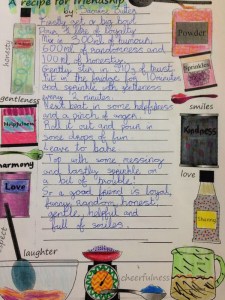 A recipe for friendship
by
Firstly get a big bowl
Pour 3 litres of loyalty
Mix in 300ml of humour,
600ml of randomness and
100ml of honesty.
Gently stir in 540g of trust
Put in the fridge for 10 minutes
and sprinkle with gentleness
every 2 minutes.
Next beat in some helpfulness
and a pinch of
Roll it out and pour in
some drops of fun
Leave to bake
Top with some
and lastly sprinkle on
a bit of
So a good friend is loyal,
funny, random, honest,
gentle, helpful and
full of smiles.
honesty
gentleness
harmony
respect
laughter
cheerfulness
love
smiles
Powder
Sprinkles
Kindness
Love
Sherry